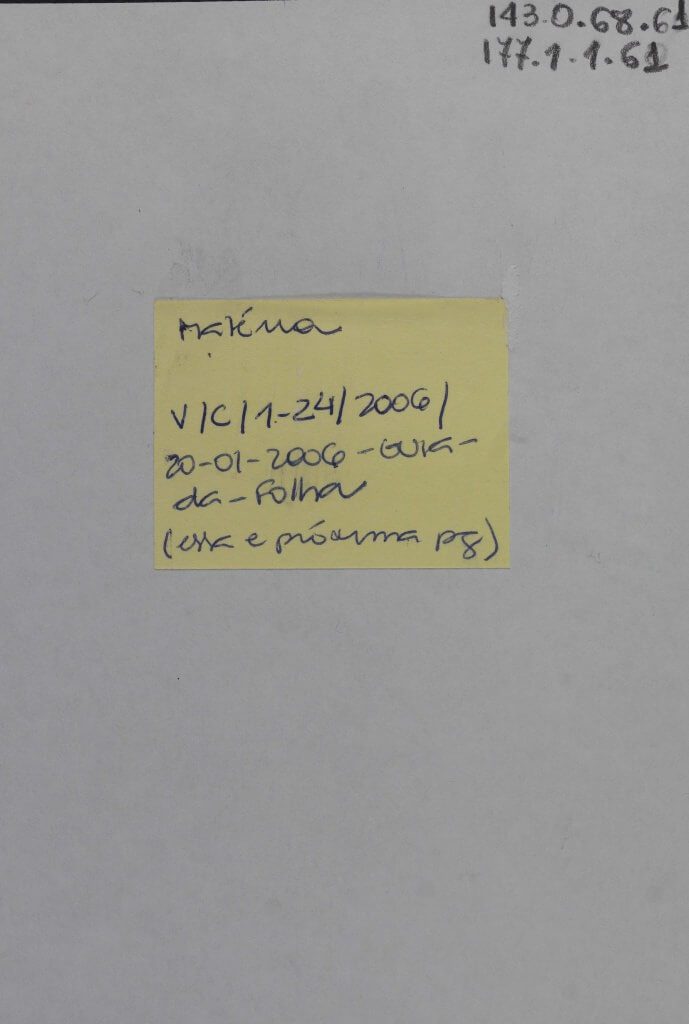 143.0.68.61
177.1.1.61
Matéria
V/C/1-24/2006/
20-01-2006-Guia-
da-Folha
(essa e próxima pg)